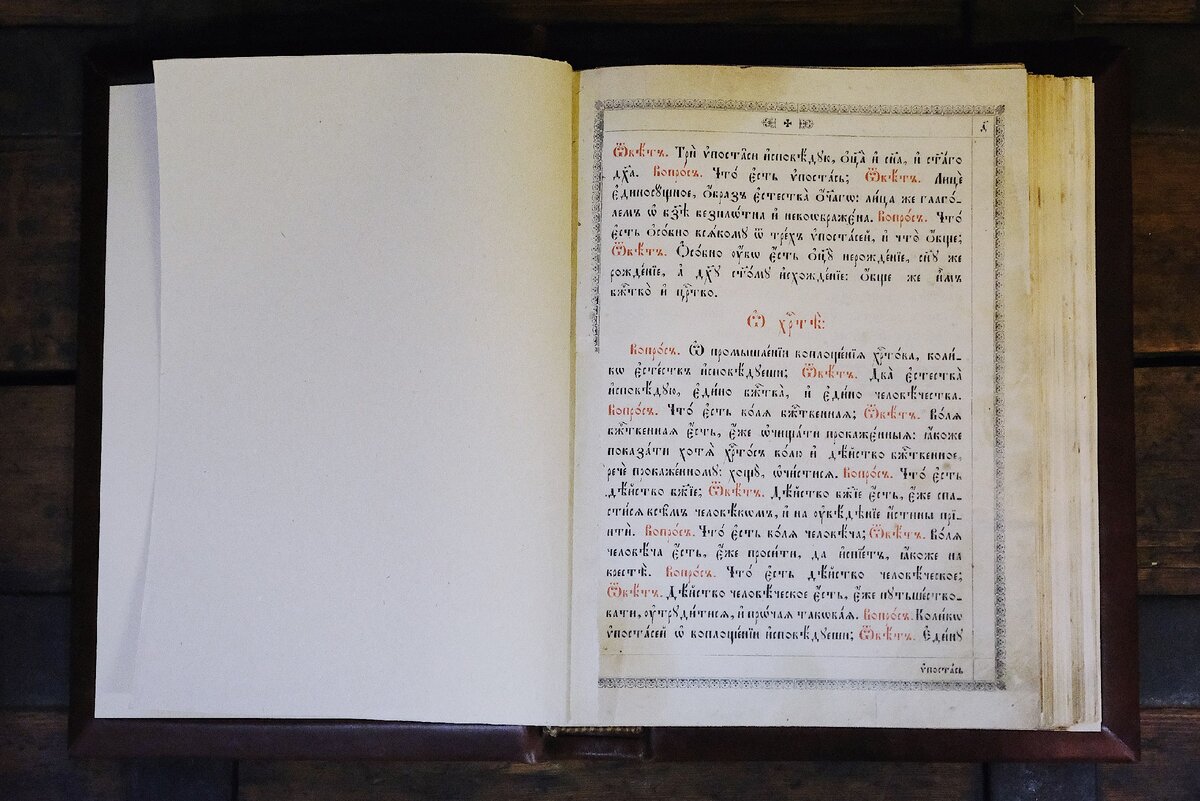 Ѿвѣ́тъ. Трѝ ѵ҆поста̑си и҆сповѣ́дꙋю, ѻ҆ц҃а̀ и҆ сн҃а, и҆ ст҃а́го
дх҃а. Вопро́съ. Что́ є҆сть ѵ҆поста́сь; Ѿвѣ́тъ. Лицѐ
є҆диносꙋ́щное, ѻ҆́бразъ є҆стества̀ ѻ҆́ч҃агѡ: ли́ца же глаго́-
лемъ ѡ҆ бз҃ѣ безплѡ́тна и҆ невоѡбраже́на. Вопро́съ. Что́
є҆́сть ѻ҆со́бно всѧ́комꙋ ѿ тре́хъ ѵ҆поста́сей, и҆ что̀ ѻ҆́бще;
Ѿвѣ́тъ. Ѻ҆со́бно ᲂу҆́бѡ є҆́сть ѻ҆ц҃ꙋ̀ нерожде́нїе, сн҃ꙋ же
рожде́нїе, а҆ дх҃ꙋ ст҃о́мꙋ и҆схожде́нїе: ѻ҆́бще же и҆̀мъ
бж҃тво̀ и҆ ца҃рство.
Ѡ҆ хр҃тѣ̀:
Вопро́съ. Ѡ҆ промышле́нїи воплоще́нїѧ хр҃то́ва, коли́-
кѡ є҆сте́ствъ и҆сповѣ́дꙋеши; Ѿвѣ́тъ. Два̀ є҆стества̀
и҆сповѣ́дꙋю, є҆ди́но бж҃тва̀, и҆ є҆ди́но человѣ́чества.
Вопро́съ. Что́ є҆сть во́лѧ бж҃твеннаѧ; Ѿвѣ́тъ. Во́лѧ
бж҃твеннаѧ є҆́сть, є҆́же ѡ҆чища́ти прокаже́нныѧ: ꙗ҆́коже
показа́ти хотѧ̀ хр҃то́съ во́лю и҆ дѣ́йство бж҃твенное,
речѐ прокаже́нномꙋ: хощꙋ̀, ѡ҆чи́стисѧ. Вопро́съ. Что́ є҆сть
дѣ́йство бж҃їе; Ѿвѣ́тъ. Дѣ́йство бж҃їе є҆́сть, є҆́же спа-
сти́сѧ всѣ́мъ человѣ́кѡмъ, и҆ на ᲂу҆вѣ́дѣнїе и҆́стины прї-
итѝ. Вопро́съ. Что́ є҆сть во́лѧ человѣ́ча; Ѿвѣ́тъ. Во́лѧ
человѣ́ча є҆́сть, є҆́же проси́ти, да и҆спїе́тъ, ꙗ҆́коже на
крестѣ̀. Вопро́съ. Что́ є҆́сть дѣ́йство человѣ́ческое;
Ѿвѣ́тъ. Дѣ́йство человѣ́ческое є҆́сть, є҆́же пꙋтьше́ство-
вати, ᲂу҆трꙋди́тисѧ, и҆ прѡ́чаѧ такѡва́ѧ. Вопро́съ. Коли́кѡ
ѵ҆поста́сей ѡ҆ воплоще́нїи и҆сповѣ́дꙋеши; Ѿвѣ́тъ. Є҆ди́нꙋ
ѵ҆поста́сь